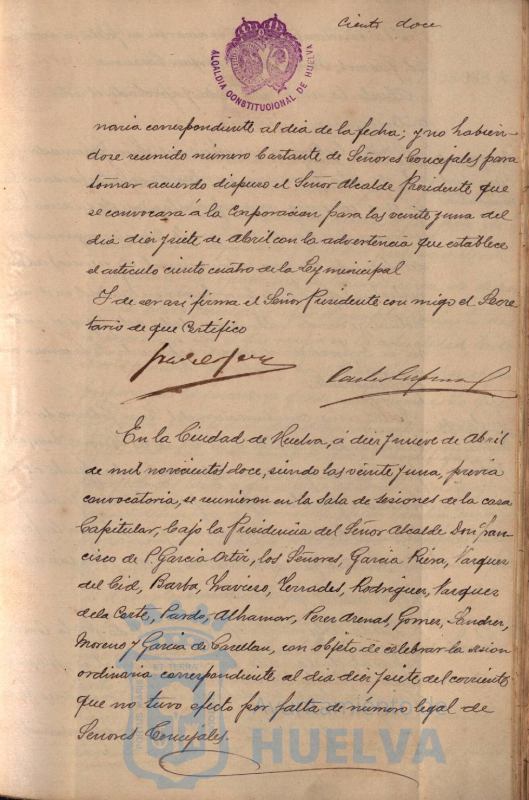 Ciento doce
ALCALDIA CONSTITUCIONAL DE HUELVA
naria correspondiente al dia de la fecha; y no habien-
dose reunido número bastante de Señores Concejales para
tomar acuerdo dispuso el Señor Alcalde Presidente que
se convocará á la Corporación para las veinte y una del
dia diez y siete de Abril con la advertencia que establece
el artículo ciento cuatro de la Ley municipal
Y de ser asi firma el Señor Presidente con migo el Secre
tario de que Certifico
En la Ciudad de Huelva, á diez y nueve de Abril
de mil novecientos doce, siendo las veinte y una, previa
convocatoria, se reunieron en la Sala de sesiones de la casa
Capitular, bajo la Presidencia del Señor Alcalde Don Fran-
cisco de P. Garcia Ortiz, los Señores, Garcia Riera, Vazquez
del Cid, Barba, Travieso, Terrades, Rodriguez, Vazquez
de la Corte, Pardo, Alhamar, Perez Arenas, Gomez, Sanchez,
Moreno y Garcia de Castellan, con objeto de celebrar la sesion
ordinaria correspondiente al dia diez y siete del corriente
que no tuvo efecto por falta de número legal de
Señores Concejales.
HUELVA